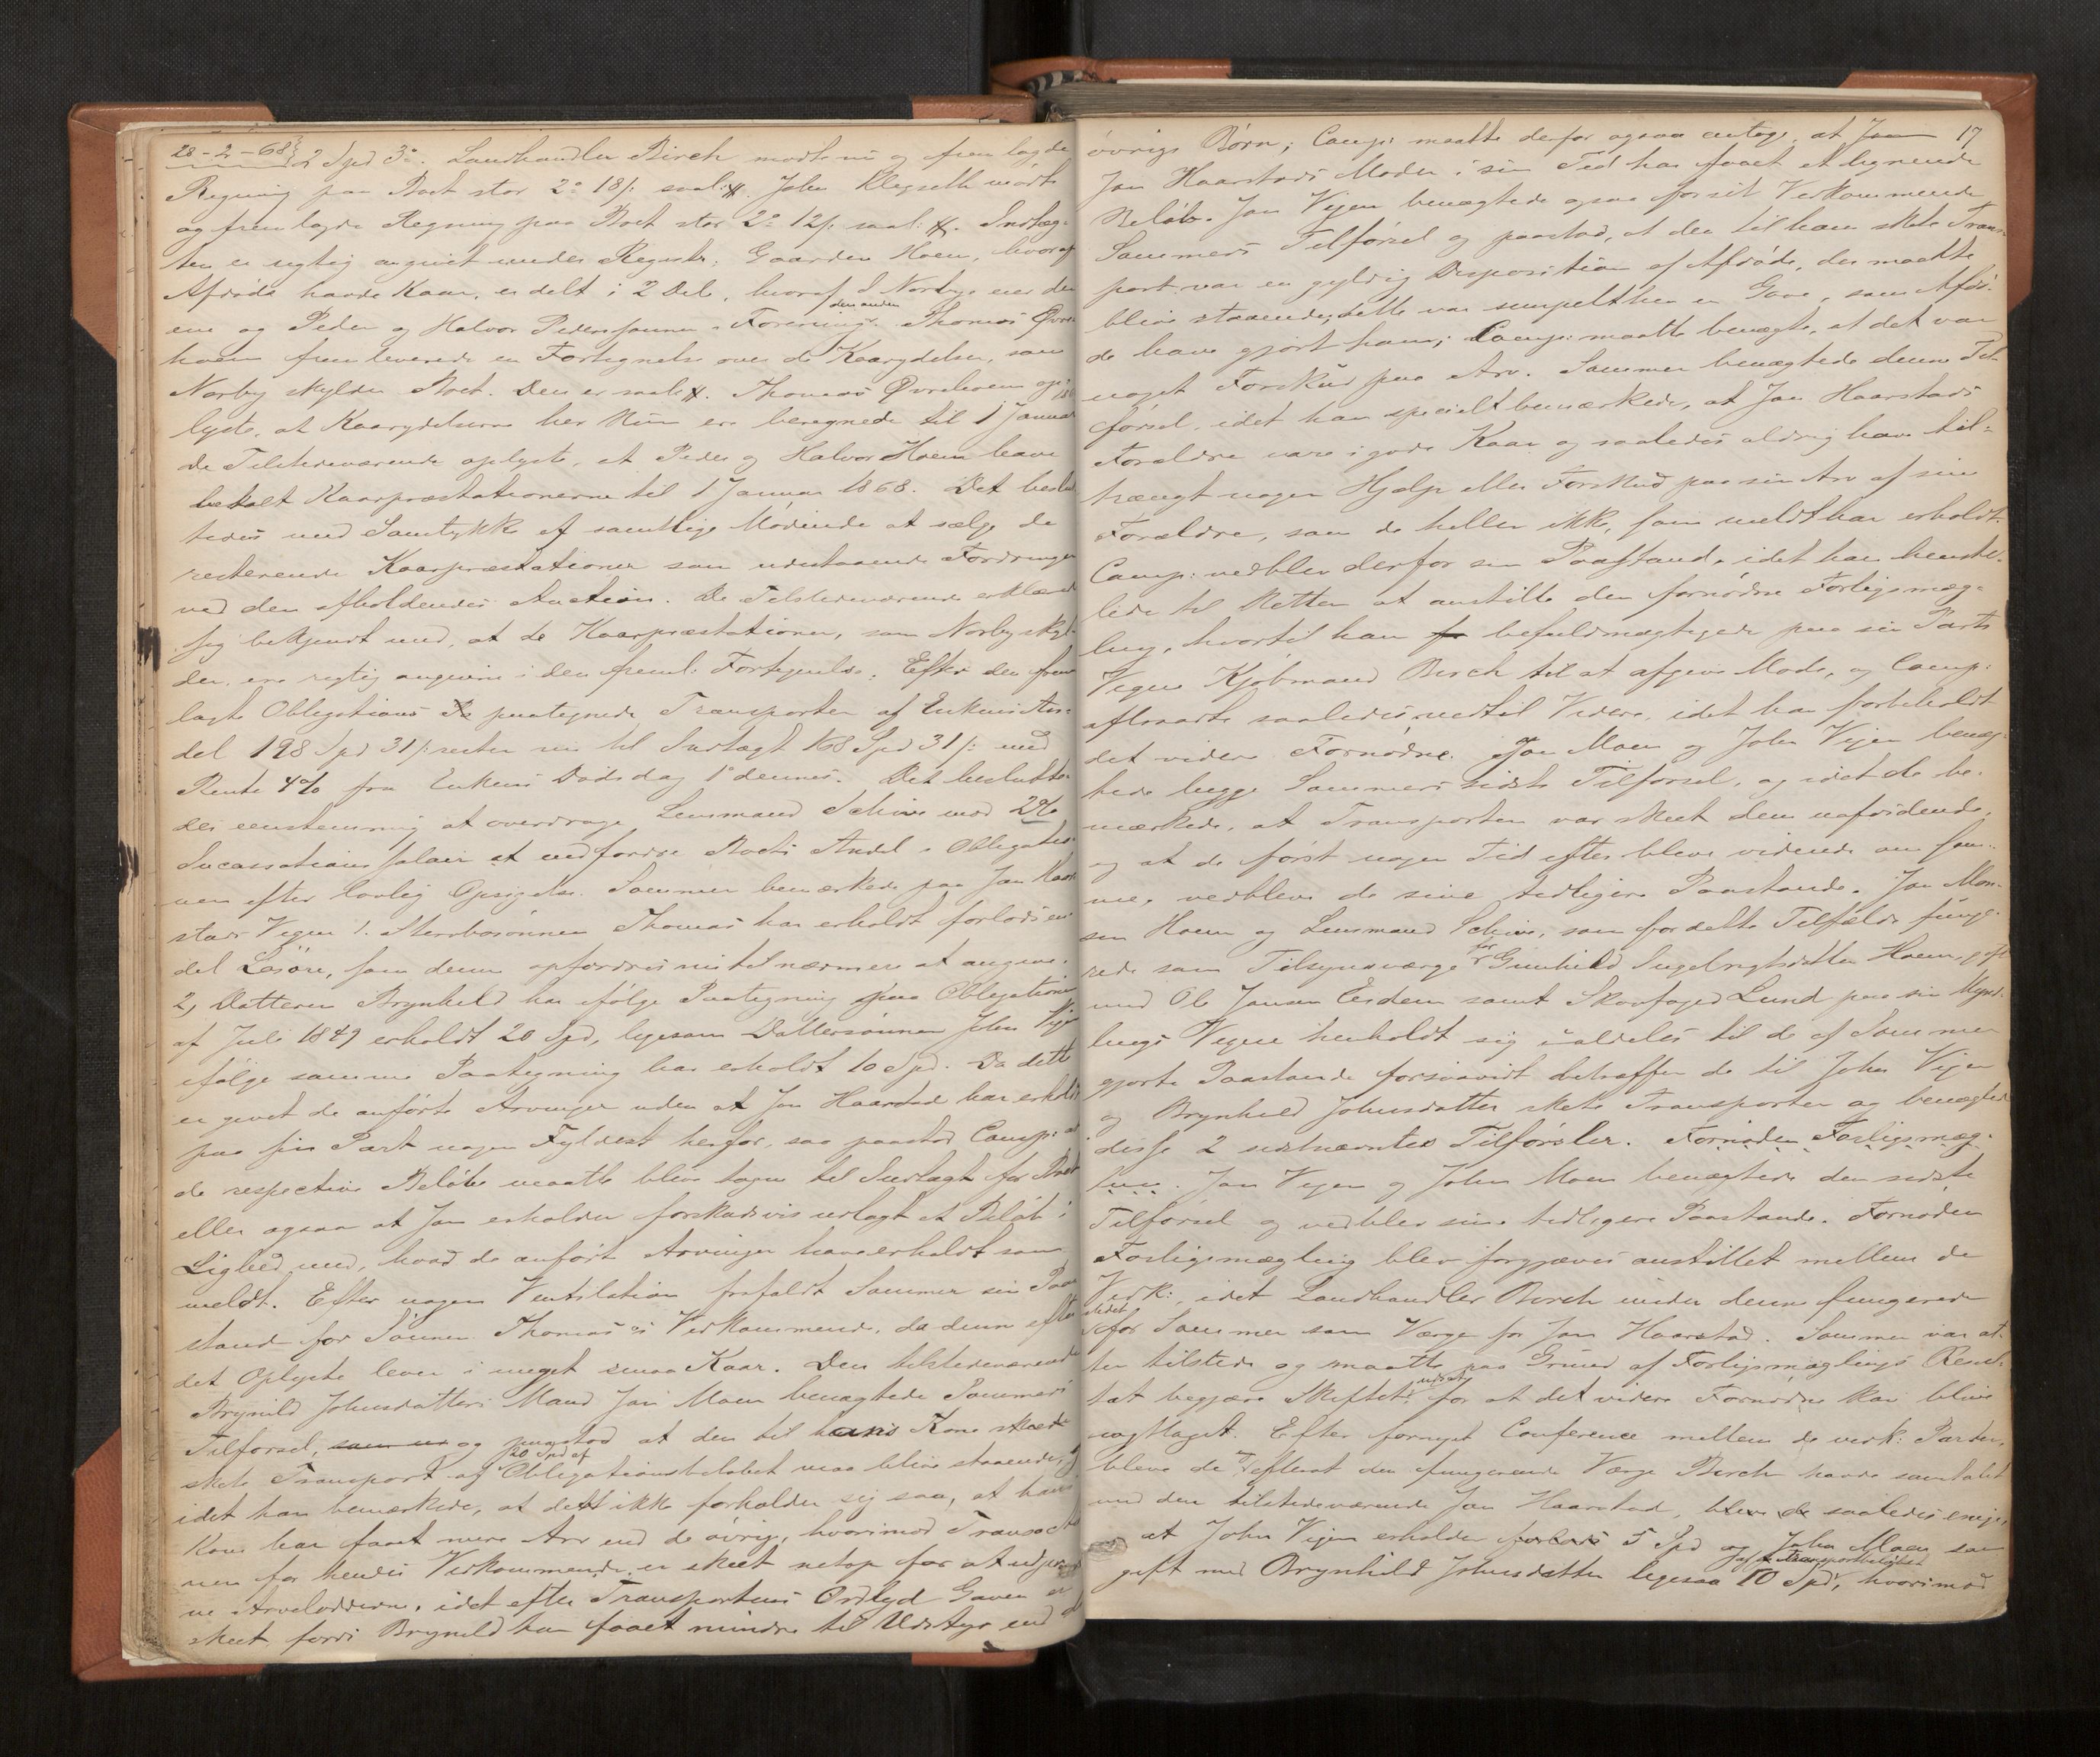 28-2-68 2 Spd 3 . Landhandler Birch mødte nu og fremlagde
Regning paa Boet stor 2 18 s: saal: #. John Klegseth mødte
og fremlagde Regning paa Boet stor 2 12 s: saal: #. Indtæg-
ten er rigtig angivet under Registr: Gaarden Hoem, hvoraf
Afdøde havde Kaar, er delt i 2 Dele, hvoraf I. Norbye eier den
ene og Peder og Halvor Pederssønner i Forening den anden. Thomas Øvre-
hoem fremleverede en Fortegnelse over de Kaarydelser, som
Norby skylder Boet. Den er saal: #. Thomas Øvrehoem op-
lyste, at Kaarydelserne her kun ere beregnede til 1 Januar
De Tilstedeværende oplyste, at Peder og Halvor Hoem have
betalt Kaarpræstationerne til 1 Januar 1868. Det beslut-
tedes med Samtykke af samtlige Mødende at sælge de
resterende Kaarpræstationer som udestaaende Fordringer
ved den afholdendes Auction. De Tilstedeværende erklærede
sig bekjendt med, at de Kaarpræstationer, som Norby skyl-
der, ere rigtig angivne i den freml: Fortegnelse. Efter den frem-
lagte Obligations paategnede Transporter af Enkens An-
del 198 Spd 31 s: rester nu til Indtægt 168 Spd 31 s: med
Rente 4% fra Enkens Dødsdag 1 dennes. Det beslutte-
des eenstemmig at overdrage Lensmand Schive mod 2%
Incassations salair at indfordre Boets Andel i Obligatio-
nen efter lovlig Opsigelse. Sommer bemærkede paa Jan Haar-
stads Vegne 1. Sterbosønnen Thomas har erholdt forlods en
del Løsøre, som denne opfordres nu til nærmere at angive.
2, Datteren Brynhild har ifølge Paategning paa Obligationen
af Juli 1849 erholdt 20 Spd, ligesom Dattersønnen John Vejen
ifølge samme Paategning har erholdt 10 Spd. Da dette
er givet de anførte Arvinger uden at Jan Haarstad har erholdt
paa sin Part nogen Fyldest herfor, saa paastod Comp: at
de respective Beløbe maatte blive tagne til Indtægt for Boet
eller ogsaa at Jan erholder forskudsvis udlagt et Beløb i
Lighed med, hvad de anførte Arvinger have erholdt som
meldt. Efter nogen Ventilation frafaldt Sommer sin Paa-
stand for Sønnen Thomas's Vedkommende, da denne efter
det Oplyste lever i meget smaa Kaar. Den tilstedeværende
Brynild Johnsdatters Mand Jan Moen benægtede Sommers
Tilførsel, og paastod at den til hans Kone skeede
skete Transport af 20 Spd af Obligationsbeløbet maa blive staaende,
idet han bemærkede, at dett ikke forholder sig saa, at hans
Kone har faaet mere Arv end de øvrige, hvorimod Transactio-
nen for hendes Vedkommende er skeet netop for at udjev-
ne Arvelodderne, idet efter Transportens Ordlyd Gaven er
skeet fordi Brynild har faaet mindre til Udstyr end
17
øvrige Børn; Comp: maatte derfor ogsaa antage, at
Jan Haarstads Moder i sin Tid har faaet et lignende
Beløb. Jan Vejen benægtede ogsaa for sit Vedkommende
Sommers Tilførsel og paastod, at den til ham skete Trans-
port var en gyldig Disposition af Afdøde, der maatte
blive staaende; dette var simpelthen en Gave, som Afdø-
de have gjort ham; Comp: maatte benægte, at det var
noget Forskud paa Arv. Sommer benægtede denne Til-
førsel, idet han specielt bemærkede, at Jan Haarstads
Forældre vare i gode Kaar og saaledes aldrig have til-
trængt nogen Hjælp eller Forskud paa sin Arv af sine
Forældre, som de heller ikke, som meldt har erholdt.
Comp: vedblev derfor sin Paastand, idet han henstil-
lede til Retten at anstille den fornødne Forligsmæg-
ling, hvortil han befuldmægtigede paa sin Parts
Vegne Kjøbmand Birch til at afgive Møde, og Comp:
afløvarte saaledes indtil Videre, idet han forbeholdt
det videre Fornødne. Jan Moen og John Vejen benæg-
tede begge Sommers sidste Tilførsel, og idet de be-
mærkede, at Transporten var skeet dem uafvidende,
og at de først nogen Tid efter bleve vidende om sam-
me, vedbleve de sine tidligere Paastande. Jan Mon-
sen Hoem og Lensmand Schive, som for dette Tilfælde funge-
rede som Tilsynsværge for Gunhild Ingebrigtsdatter Hoem, gift
med Ole Jansen Eidem samt Skovfoged Lund paa sin Mynd-
lings Vegne henholdt sig i aldeles til de af Sommer
gjorte Paastande forsaavidt betræffer de til John Vejen
og Brynhild Johnsdatter skete Transporter og benægted
disse 2 sidstnævntes Tilførsler. Fornøden Forligsmæg-
ling. Jan Vejen og John Moen benægtede den sidste
Tilførsel og vedblev sine tidligere Paastande. Fornøden
Forligsmægling blev forgjæves anstillet mellem de
Vedk:, idet Landhandler Birch under denne fungerede
istedet for Sommer som Værge for Jan Haarstad. Sommer var at-
ter tilstede og maatte paa Grund af Forligsmæglings Resul-
tat begjære Skiftet udsat, for at det videre Fornødne kan blive
iagttaget. Efter fornyet Conference mellem de vedk: Parter,
bleve de, efterat den fungerende Værge Birch havde samtalet
med den tilstedeværende Jan Haarstad, blev de saaledes enige,
at John Vejen erholder forlods 5 Spd og John Moen som
gift med Brynhild Johnsdatter ligesaa af Transportbeløbet 10 Spd, hvorimod